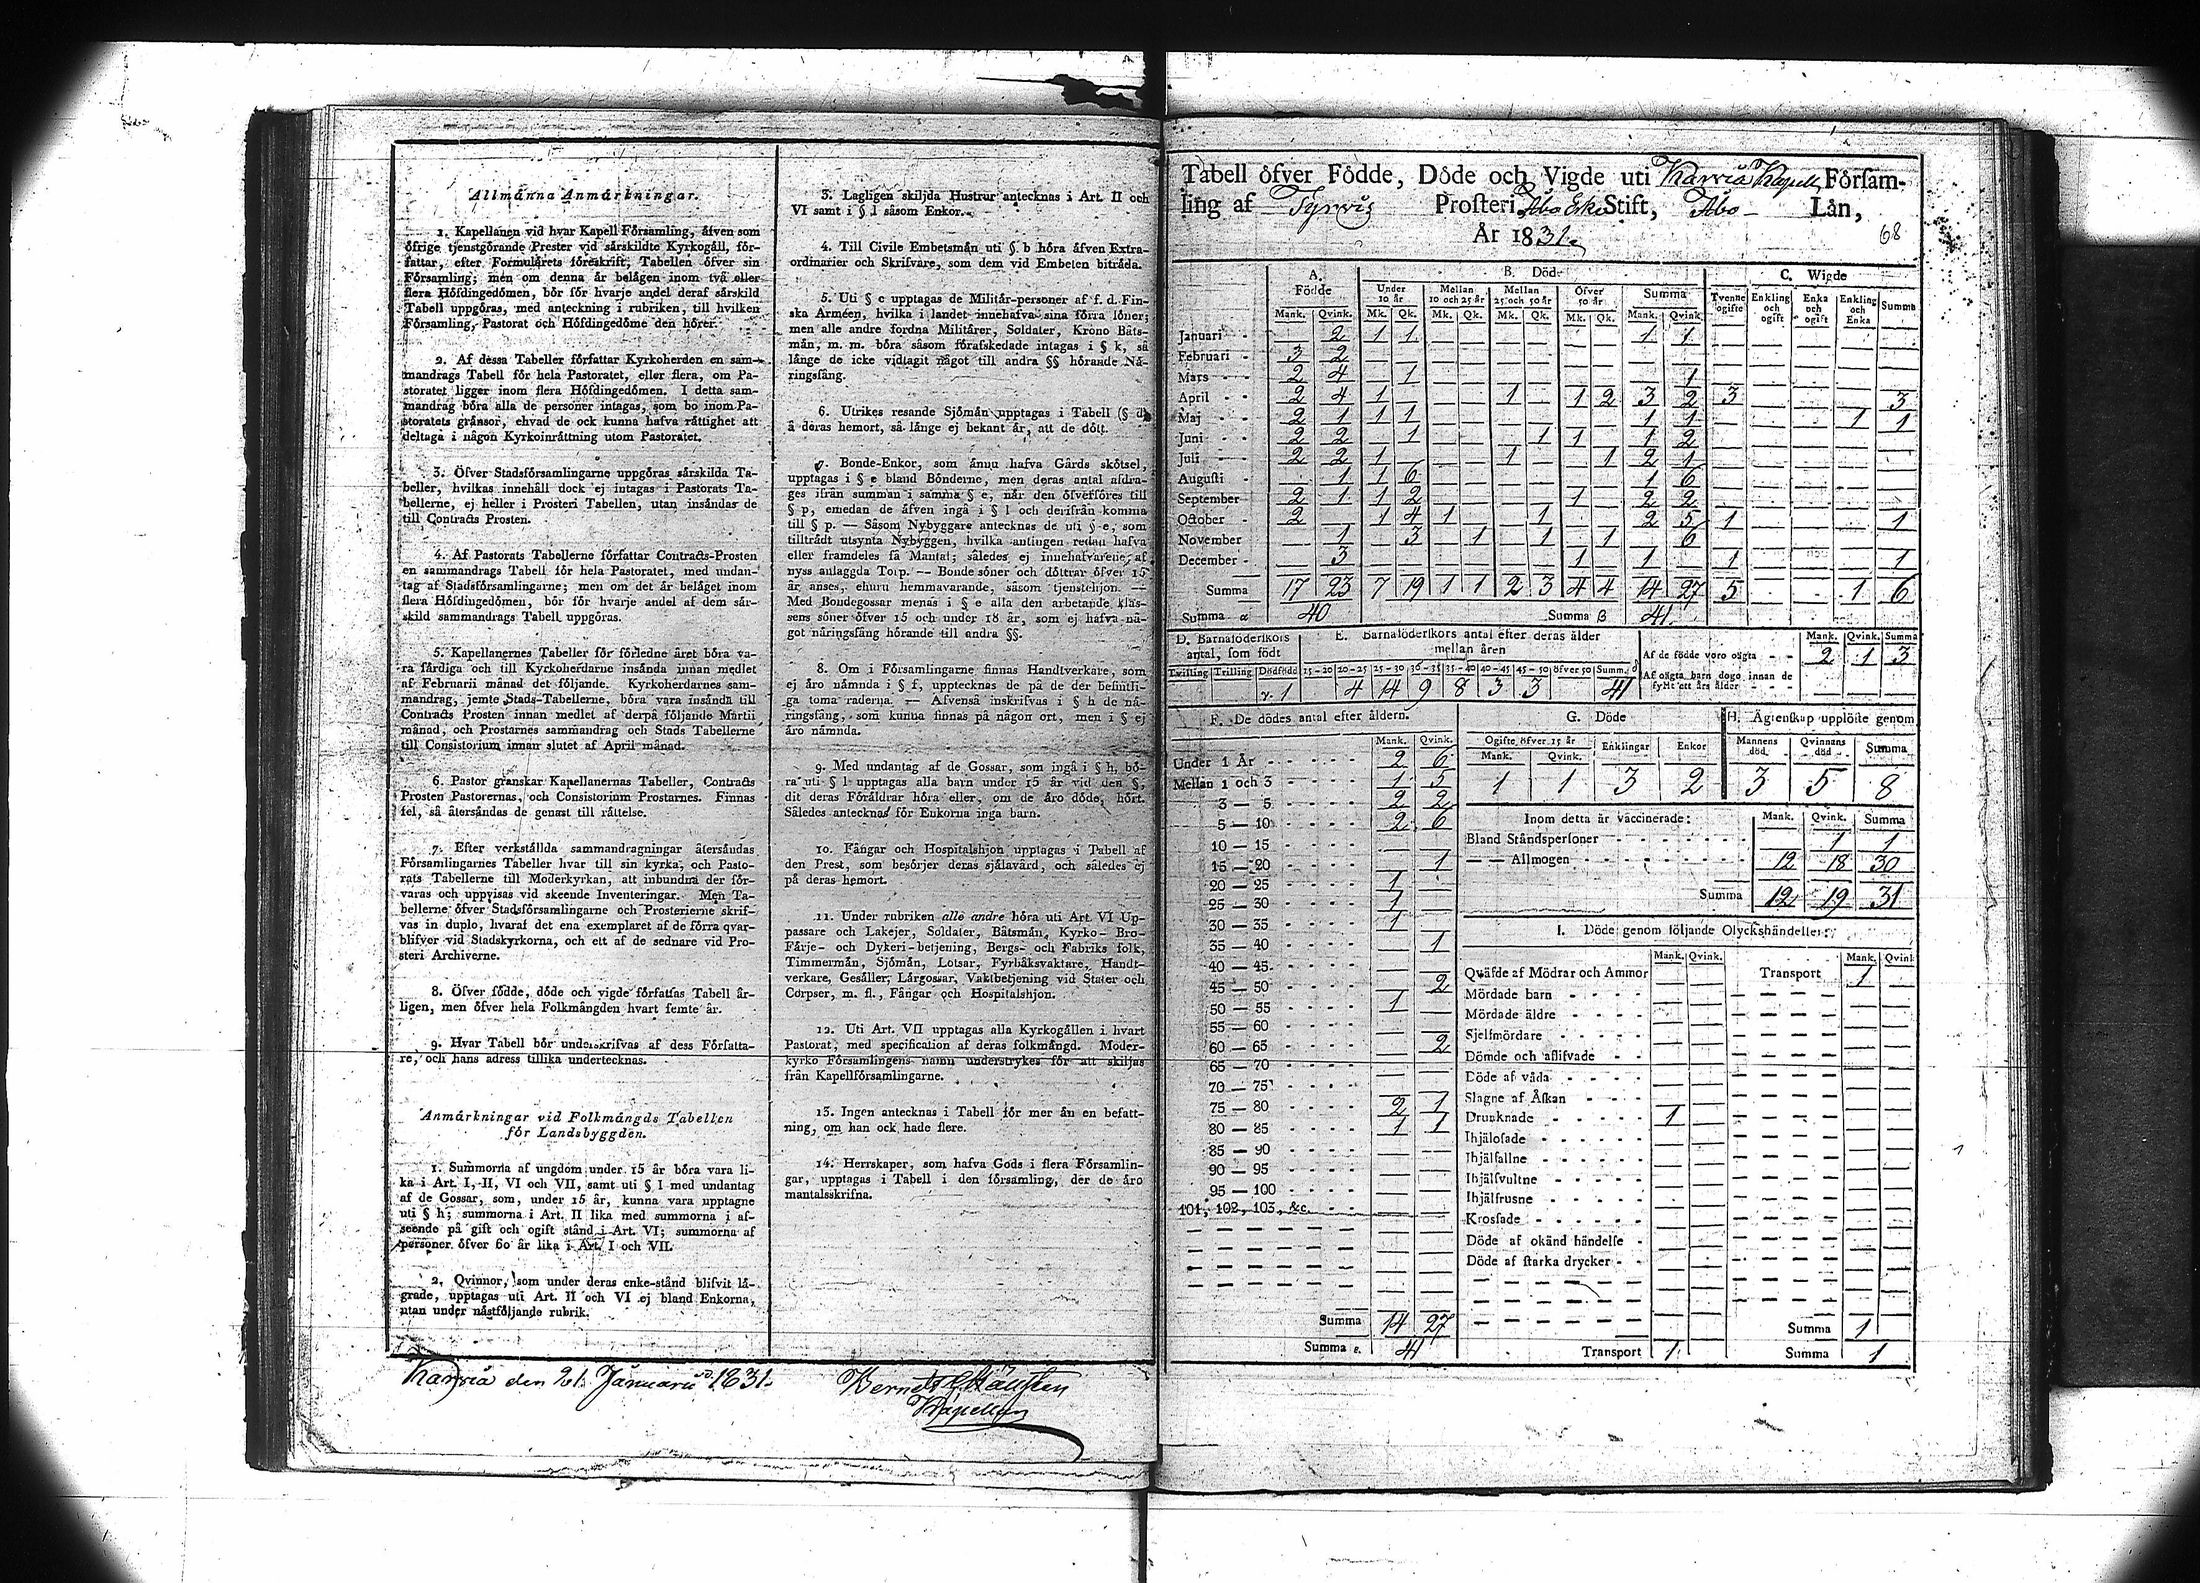 Allmånna Anmårkningar.
1. Kapellanen vid hvar Kapell Församling, åfven som
öfrige tjenstgörande Prester vid sårskildte Kyrkogåll, för-
fattar, efter Formulårets föreskrift, Tabellen öfver sin
Församling; men om denna år belågen inom två eller
flera Höfdingedömen, bör för hvarje andel deraf sårskild
Tabell uppgöras, med anteckning i rubriken, till hvilken
Församling, Pastorat och Höfdingedöme den hörer.
2. Af dessa Tabeller författar Kyrkoherden en sam-
mandrags Tabell för hela Pastoratet, eller flera, om Pa-
storatet ligger inom flera Höfdingedömen. I detta sam-
mandrag böra alla de personer intagas, som bo inom Pa-
storatets grånsor, ehvad de ock kunna hafva råttighet att
deltaga i någon Kyrkoinråttning utom Pastoratet.
3. Öfver Stadsförsamlingarne uppgöras sårskilda Ta-
beller, hvilkas innehåll dock ej intagas i Pastorats Ta-
bellerne, ej heller i Prosteri Tabellen, utan insåndas de
till Contracts Prosten.
4. Af Pastorats Tabellerne författar Contracts-Prosten
en sammandrags Tabell för hela Pastoratet, med undan-
tag af Stadsförsamlingarne; men om det år belåget inom
flera Höfdingedömen, bör för hvarje andel af dem sår-
skild sammandrags Tabell uppgöras.
5. Kapellanernes Tabeller för förledne året böra va-
ra fårdiga och till Kyrkoherdarne insånda innan medlet
af Februarii månad det följande. Kyrkoherdarnes sam-
mandrag, jemte Stads-Tabellerne, böra vara insånda till
Contracts Prosten innan medlet af derpå följande Martii
månad, och Prostarnes sammandrag och Stads Tabellerne
till Consistorium innan slutet af April månad.
6. Pastor granskar Kapellanernas Tabeller, Contracts
Prosten Pastorernas, och Consistorium Prostarnes. Finnas
fel, så återsåndas de genast till råttelse.
7. Efter verkstållda sammandragningar återsåndas
Församlingarnes Tabeller hvar till sin kyrka, och Pasto-
rats Tabellerne till Moderkyrkan, att inbundna der för-
varas och uppvisas vid skeende Inventeringar. Men Ta-
bellerne öfver Stadsförsamlingarne och Prosterierne skrif-
vas in duplo, hvaraf det ena exemplaret af de förra qvar-
blifver vid Stadskyrkorna, och ett af de sednare vid Pro-
steri Archiverne.
8. Öfver födde, döde och vigde författas Tabell år-
ligen, men öfver hela Folkmångden hvart femte år.
9. Hvar Tabell bör underskrifvas af dess Författa-
re, och hans adress tillika undertecknas.
Anmårkningar vid Folkmångds Tabellen
för Landsbyggden.
1. Summorna af ungdom under 15 år böra vara li-
ka i Art. I, II, VI och VII, samt uti § l med undantag
af de Gossar, som, under 15 år, kunna vara upptagne
uti § h; summorna i Art. II lika med summorna i af-
seende på gift och ogift stånd i Art. VI; summorna af
personer öfver 60 år lika i Art. I och VII.
2. Qvinnor, som under deras enke-stånd blifvit lå-
grade, upptagas uti Art. II och VI ej bland Enkorna,
utan under nåstföljande rubrik.
3. Lagligen skiljda Hustrur antecknas i Art. II och
VI samt i § l såsom Enkor.
4. Till Civile Embetsmån uti § b höra åfven Extra-
ordinarier och Skrifvare, som dem vid Embeten bitråda.
5. Uti § c upptagas de Militår-personer af f. d. Fin-
ska Arméen, hvilka i landet innehafva sina förra löner;
men alle andre fordna Militårer, Soldater, Krono Båts-
mån, m. m. böra såsom föråfskedade intagas i § k, så
långe de icke vidtagit något till andra §§ hörande Nå-
ringsfång.
6. Utrikes resande Sjömån upptagas i Tabell (§ d)
å deras hemort, så långe ej bekant år, att de dött.
7. Bonde-Enkor, som ånnu hafva Gårds skötsel,
upptagas i § e bland Bönderne, men deras antal afdra-
ges ifrån summan i samma § e, når den öfverföres till
§ p, emedan de åfven ingå i § l och derifrån komma
till § p. — Såsom Nybyggare antecknas de uti § e, som
tilltrådt utsynta Nybyggen, hvilka antingen redan hafva
eller framdeles få Mantal; således ej innehafvarene af
nyss anlaggda Torp. — Bonde söner och döttrar öfver 15
år anses, ehuru hemmavarande, såsom tjenstehjon. —
Med Bondegossar menas i § e alla den arbetande klas-
sens söner öfver 15 och under 18 år, som ej hafva nå-
got nåringsfång hörande till andra §§.
8. Om i Församlingarne finnas Handtverkare, som
ej åro nåmnda i § f, upptecknas de på de der befintli-
ga toma raderna. — Åfvenså inskrifvas i § h de nå-
ringsfång, som kunna finnas på någon ort, men i § ej
åro nåmnda.
9. Med undantag af de Gossar, som ingå i § h, bö-
ra uti § l upptagas alla barn under 15 år vid den §,
dit deras Föråldrar höra eller, om de åro döde, hört.
Således antecknas för Enkorna inga barn.
10. Fångar och Hospitalshjon upptagas i Tabell af
den Prest, som besörjer deras sjålavård, och således ej
på deras hemort.
11. Under rubriken alle andre höra uti Art. VI Up-
passare och Lakejer, Soldater, Båtsmån, Kyrko- Bro-
Fårje- och Dykeri-betjening, Bergs- och Fabriks folk,
Timmermån, Sjömån, Lotsar, Fyrbåksvaktare, Handt-
verkare, Gesåller, Lårgossar, Vaktbetjening vid Stater och
Corpser, m. fl., Fångar och Hospitalshjon.
12. Uti Art. VII upptagas alla Kyrkogållen i hvart
Pastorat, med specification af deras folkmångd. Moder-
kyrko Församlingens namn understrykes för att skiljas
från Kapellförsamlingarne.
13. Ingen antecknas i Tabell för mer ån en befatt-
ning, om han ock hade flere.
14. Herrskaper, som hafva Gods i flera Församlin-
gar, upptagas i Tabell i den församling, der de åro
mantalsskrifna.
den 21 Januarii 1831.
Kapellan
Tabell öfver Födde, Döde och Vigde uti Karvia Kapell Församling
ling af Tyrvis Prosteri Åbo Erke Stift, Åbo Lån,
År 1831. 68
A. Födde B. Döde C. Wigde
Under 10 år Mellan 10 och 25 år Mellan 25 och 50 år Öfver 50 år Summa Tvenne ogifte Enkling och ogift Enka och ogift Enkling och Enka Summa
Mank. Qvink. Mk. Qk. Mk. Qk. Mk. Qk. Mk. Qk. Mank. Qvink.
Januari — 2 1 1 — — — — — — 1 1 — — — — —
Februari 3 2 — — — — — — — — — — — — — — —
Mars 2 4 — 1 — — — — — — — 1 — — — — —
April 2 4 1 — — — 1 — 1 2 3 2 3 — — — 3
Maj 2 1 1 1 — — — — — — 1 1 — — — 1 1
Juni 2 2 — 1 — — — 1 1 — 1 2 — — — — —
Juli 2 2 1 — — — 1 — — 1 2 1 — — — — —
Augusti — 1 1 6 — — — — — — 1 6 — — — — —
September 2 1 1 2 — — — — 1 — 2 2 — — — — —
October 2 — 1 4 1 — — 1 — — 2 5 1 — — — 1
November — 1 — 3 — 1 — 1 — 1 — 6 — — — — —
December — 3 — — — — — — 1 — 1 — 1 — — — 1
Summa 17 23 7 19 1 1 2 3 4 4 14 27 5 - - 1 6
Summa α 40 Summa β 41.
D. Barnaföderskors antal, som födt
Tvilling Trilling Dödfödde
q. 1
E. Barnaföderskors antal efter deras ålder mellan åren
15-20 20-25 25-30 30-35 35-40 40-45 45-50 öfver 50 Summ. δ
4 14 9 8 3 3 41
Mank. Qvink. Summa
Af de födde voro oågta 2 1 3
Af oågta barn dogo innan de
fyllt ett års ålder — — —
F. De dödes antal efter åldern.
Mank. Qvink.
Under 1 År 2 6
Mellan 1 och 3 1 5
3 — 5 2 2
5 — 10 2 6
10 — 15 — —
15 — 20 — 1
20 — 25 1 —
25 — 30 1 —
30 — 35 1 —
35 — 40 — 1
40 — 45 — —
45 — 50 — 2
50 — 55 1 —
55 — 60 — —
60 — 65 — 2
65 — 70 — —
70 — 75 — —
75 — 80 2 1
80 — 85 1 1
85 — 90 — —
90 — 95 — —
95 — 100 — —
101, 102, 103, &c. — —
Summa 14 27
Summa ε. 41
G. Döde
Ogifte öfver 15 år Enklingar Enkor
Mank. Qvink.
1 1 3 2
H. Ågtenskap upplöste genom
Mannens död Qvinnans död Summa
3 5 8
Inom detta år vaccinerade: Mank. Qvink. Summa
Bland Ståndspersoner — 1 1
— — Allmogen 12 18 30
Summa 12 19 31
I. Döde genom följande Olyckshåndelser:
Mank. Qvink. Mank. Qvink
Qvåfde af Mödrar och Ammor — — Transport 1
Mördade barn
Mördade åldre
Sjelfmördare
Dömde och aflifvade
Döde af våda
Slagne af Åskan
Drunknade 1 —
Ihjålosade
Ihjålfallne
Ihjålsvultne
Ihjålfrusne
Krossade
Döde af okånd håndelse
Döde af starka drycker
Summa 1
Transport 1 Summa 1